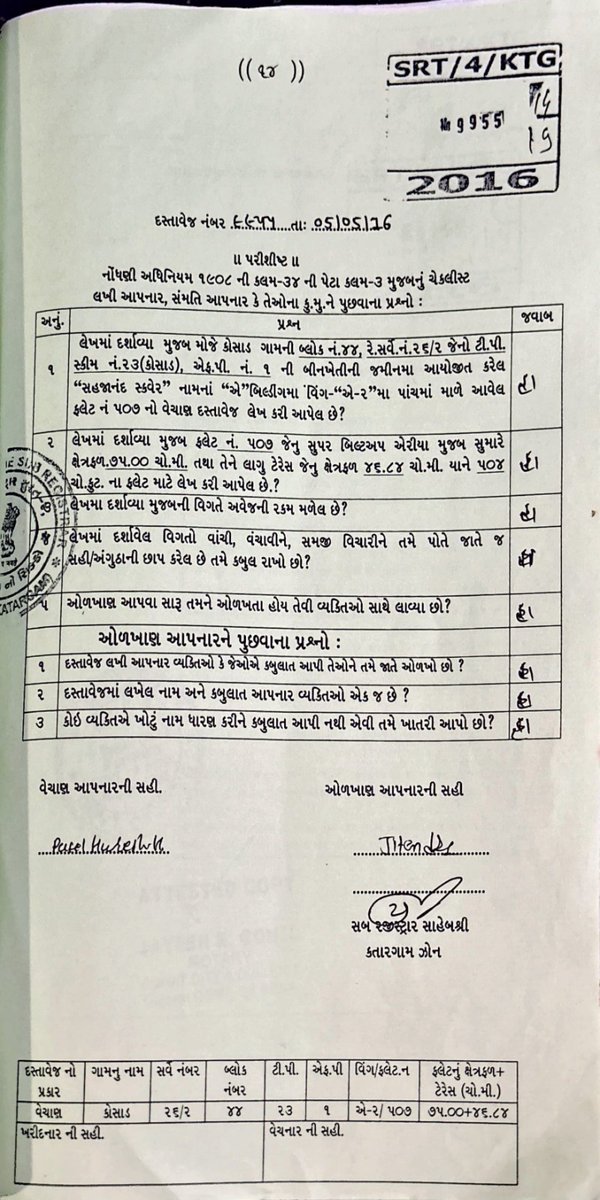 ((૧૪))
SRT/4/KTG
№ 9955
2016
દસ્તાવેજ નંબર ૯૯૫૫ તાઃ 05/05/16
॥ પરીશીષ્ટ ॥
નોંધણી અધિનિયમ ૧૯૦૮ ની કલમ-૩૪ ની પેટા કલમ-૩ મુજબનું ચેકલીસ્ટ
લખી આપનાર, સંમતિ આપનાર કે તેઓના કુ.મુ.ને પુછવાના પ્રશ્નો :
અનું. પ્રશ્ન જવાબ
લેખમાં દર્શાવ્યા મુજબ મોજે કોસાડ ગામની બ્લોક નં.૪૪, રે.સર્વે.નં.૨૬/૨ જેનો ટી.પી.
૧ સ્કીમ નં.૨૩(કોસાડ), એફ.પી. નં. ૧ ની બીનખેતીની જમીનમાં આયોજીત કરેલ
“સહજાનંદ સ્કવેર” નામનાં “એ”બિલ્ડીગમાં વિંગ-“એ-૨”મા પાંચમાં માળે આવેલ હા
ફ્લેટ નં ૫૦૭ નો વેચાણ દસ્તાવેજ લેખ કરી આપેલ છે?
૨ લેખમાં દર્શાવ્યા મુજબ ફ્લેટ નં. ૫૦૭ જેનુ સુપર બિલ્ટઅપ એરીયા મુજબ સુમારે
ક્ષેત્રફળ.૭૫.૦૦ ચો.મી. તથા તેને લાગુ ટેરેસ જેનુ ક્ષેત્રફળ ૪૬.૮૪ ચો.મી. યાને ૫૦૪ હા
ચો.ફુટ. ના ફ્લેટ માટે લેખ કરી આપેલ છે.?
લેખમા દર્શાવ્યા મુજબની વિગતે અવેજની રકમ મળેલ છે? હા
લેખમાં દર્શાવેલ વિગતો વાંચી, વંચાવીને, સમજી વિચારીને તમે પોતે જાતે જ
સહી/અંગુઠાની છાપ કરેલ છે તમે કબુલ રાખો છો? હા
૫ ઓળખાણ આપવા સારૂ તમને ઓળખતા હોય તેવી વ્યક્તિઓ સાથે લાવ્યા છો? હા
ઓળખાણ આપનારને પુછવાના પ્રશ્નો :
૧ દસ્તાવેજ લખી આપનાર વ્યક્તિઓ કે જેઓએ કબુલાત આપી તેઓને તમે જાતે ઓળખો છો ? હા
૨ દસ્તાવેજમાં લખેલ નામ અને કબુલાત આપનાર વ્યક્તિઓ એક જ છે ? હા
૩ કોઇ વ્યક્તિએ ખોટું નામ ધારણ કરીને કબુલાત આપી નથી એવી તમે ખાતરી આપો છો? હા
વેચાણ આપનારની સહી. ઓળખાણ આપનારની સહી
સબ રજીસ્ટ્રાર સાહેબશ્રી
કતારગામ ઝોન
દસ્તાવેજ નો ગામનુ નામ સર્વે નંબર બ્લોક ટી.પી. એફ.પી વિંગ/ફ્લેટ.ન ફ્લેટનું ક્ષેત્રફળ+
પ્રકાર નંબર ટેરેસ (ચો.મી.)
વેચાણ કોસાડ ૨૬/૨ ૪૪ ૨૩ ૧ એ-૨/ ૫૦૭ ૭૫.૦૦+૪૬.૮૪
ખરીદનાર ની સહી. વેચનાર ની સહી.